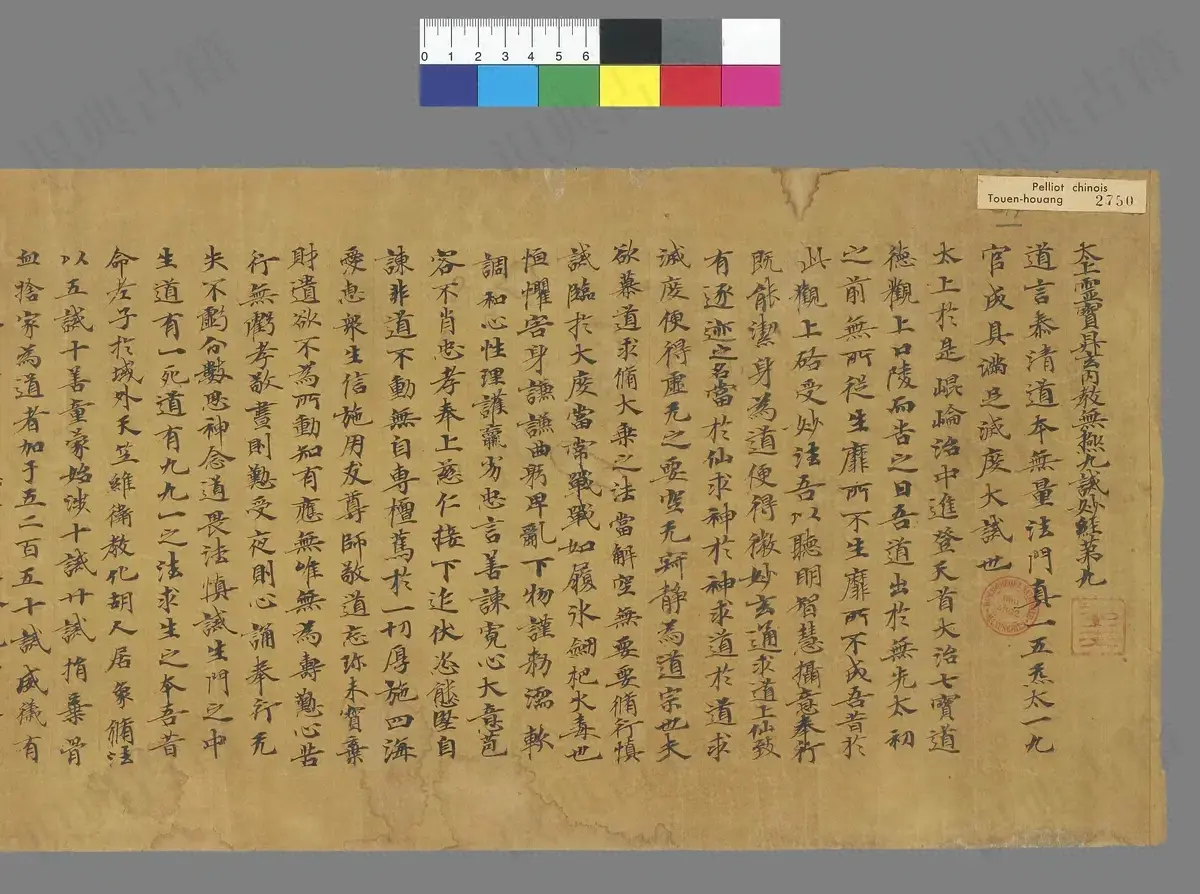 Pelliot chinois
Touen-houang 2750
0 1 2 3 4 5 6
太上靈寶昇玄內教無極九誡妙經第九
道言泰清道本無量法門真一五炁太一九
官成具滿足滅度大誡世
太上於是崐崘治中進登天首大治七寶道
德觀上口陵而告之曰吾道出於無先太初
之前無所從生靡所不生靡所不成吾昔於
此觀上硌受妙法吾以聰明智慧攝意奉行
既能潔身為道便得微妙玄通求道上仙致
有逐迹之名當於仙求神於神求道於道求
滅度便得虛无之要空无寂静為道宗也夫
欲慕道求脩大乗之法當解空無要要脩行慎
誡臨於大度當常戰戰如履氷劒杷火毒也
恒懼害身謙謙曲躬卑亂下物謹勑濡軟
調和心性理護羸劣忠言善諫寛心大意苞
容不肖忠孝奉上慈仁接下近伏恣態墜自
諫非道不動無自専擅篤於一切厚施四海
愛恵衆生信施用友尊師敬道忘珎末賀棄
財遺欲不為所動知有應無唯無為壽懃心苦
行無虧孝敬晝則懃受夜則心誦奉行无
失不虧分數思神念道畏法慎誡生門之中
生道有一死道有九九一之法求生之本吾昔
命老子於域外天竺維衛教化胡人居家脩法
以五誡十善童蒙始涉十誡廿誡捐棄骨
血捨家為道者加于五二百五十誡威儀有